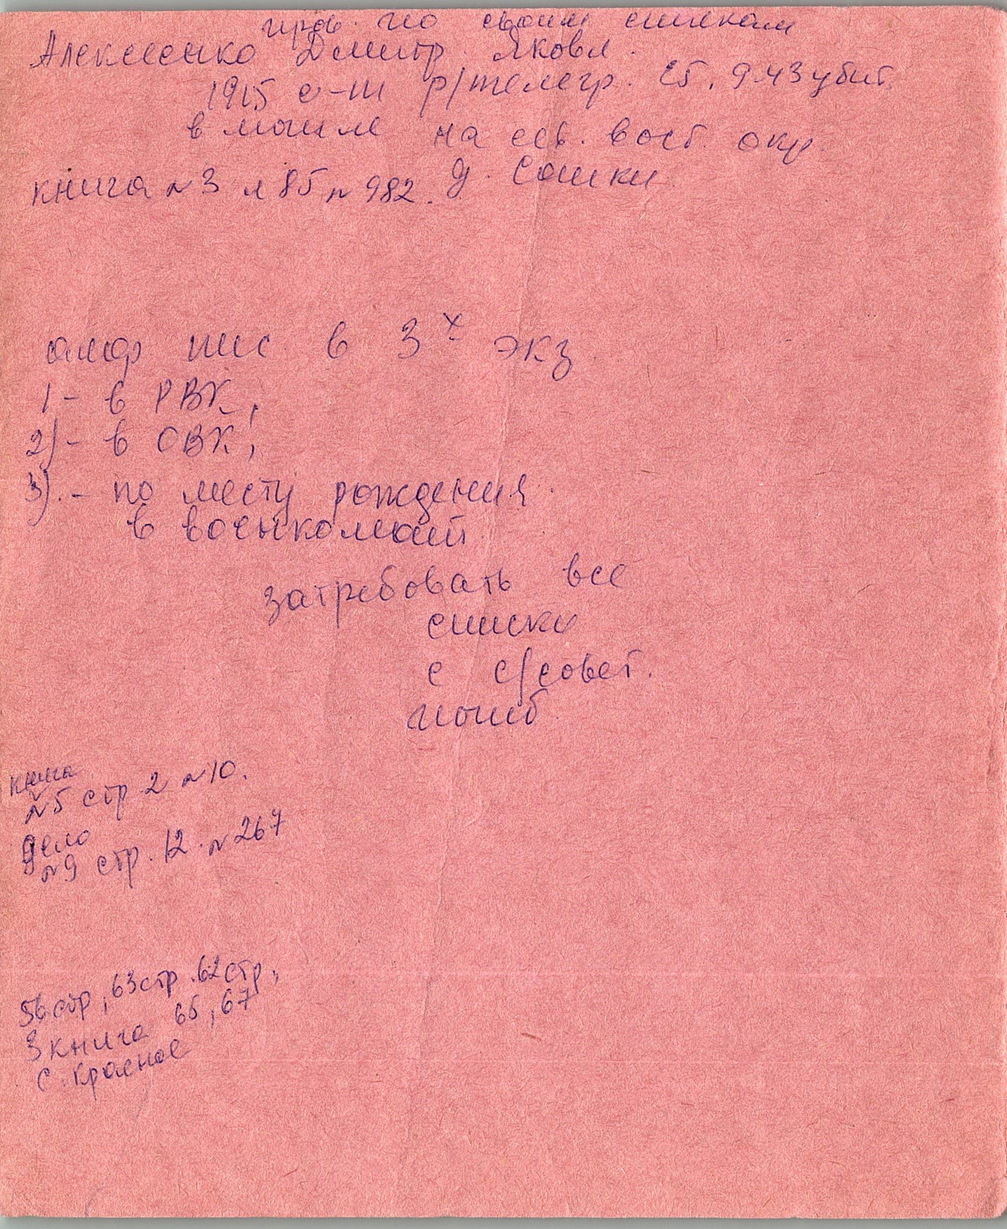 пров. по своим спискам
Алексеенко Дмитр. Яковл.
1915 с-т р/телегр. 25.9.43 убит
в могиле на сев. вост. окр
книга №3 л 85 № 982. д. Сошки
алф пис в 3х экз
1- в РВК,
2)- в ОВК,
3).- по месту рождения
в военкомат
затребовать все
списки
с с/совет.
погиб
книга
№5 стр 2 №10.
Дело
№9 стр. 12. №267
56 стр, 63 стр. 62 стр,
3 книга 65, 67
с. Красное